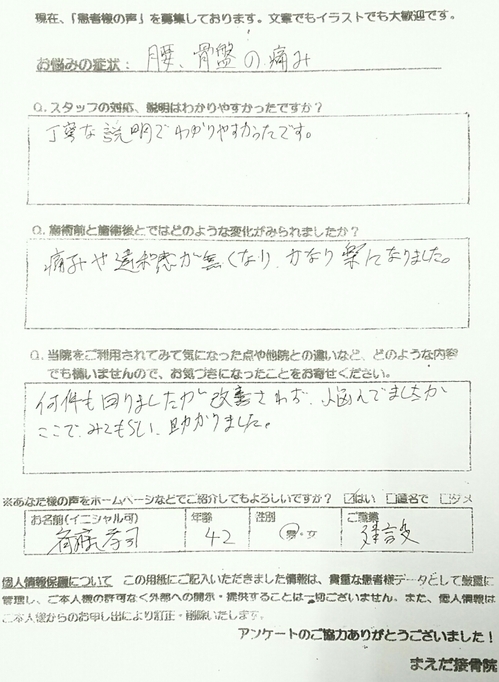 現在、「患者様の声」を募集しております。文章でもイラストでも大歓迎です。
お悩みの症状： 腰、骨盤の痛み
Q.スタッフの対応、説明はわかりやすかったですか？
丁寧な説明でわかりやすかったです。
Q.施術前と施術後とではどのような変化がみられましたか？
痛みや違和感が無くなり、かなり楽になりました。
Q.当院をご利用されてみて気になった点や他院との違いなど、どのような内容
でも構いませんので、お気づきになったことをお寄せください。
何件も回りましたが改善されず、悩んでましたが
ここでみてもらい、助かりました。
※あなた様の声をホームページなどでご紹介してもよろしいですか？ ☑はい □匿名で □ダメ
お名前(イニシャル可) 年齢 性別 ご職業
孝司 42 男・女 建設
個人情報保護について この用紙にご記入いただきました情報は、貴重な患者様データとして厳重に
管理し、ご本人様の許可なく外部への開示・提供することは一切ございません。また、個人情報は
ご本人様からのお申し出により訂正・削除いたします。
アンケートのご協力ありがとうございました！
まえだ接骨院